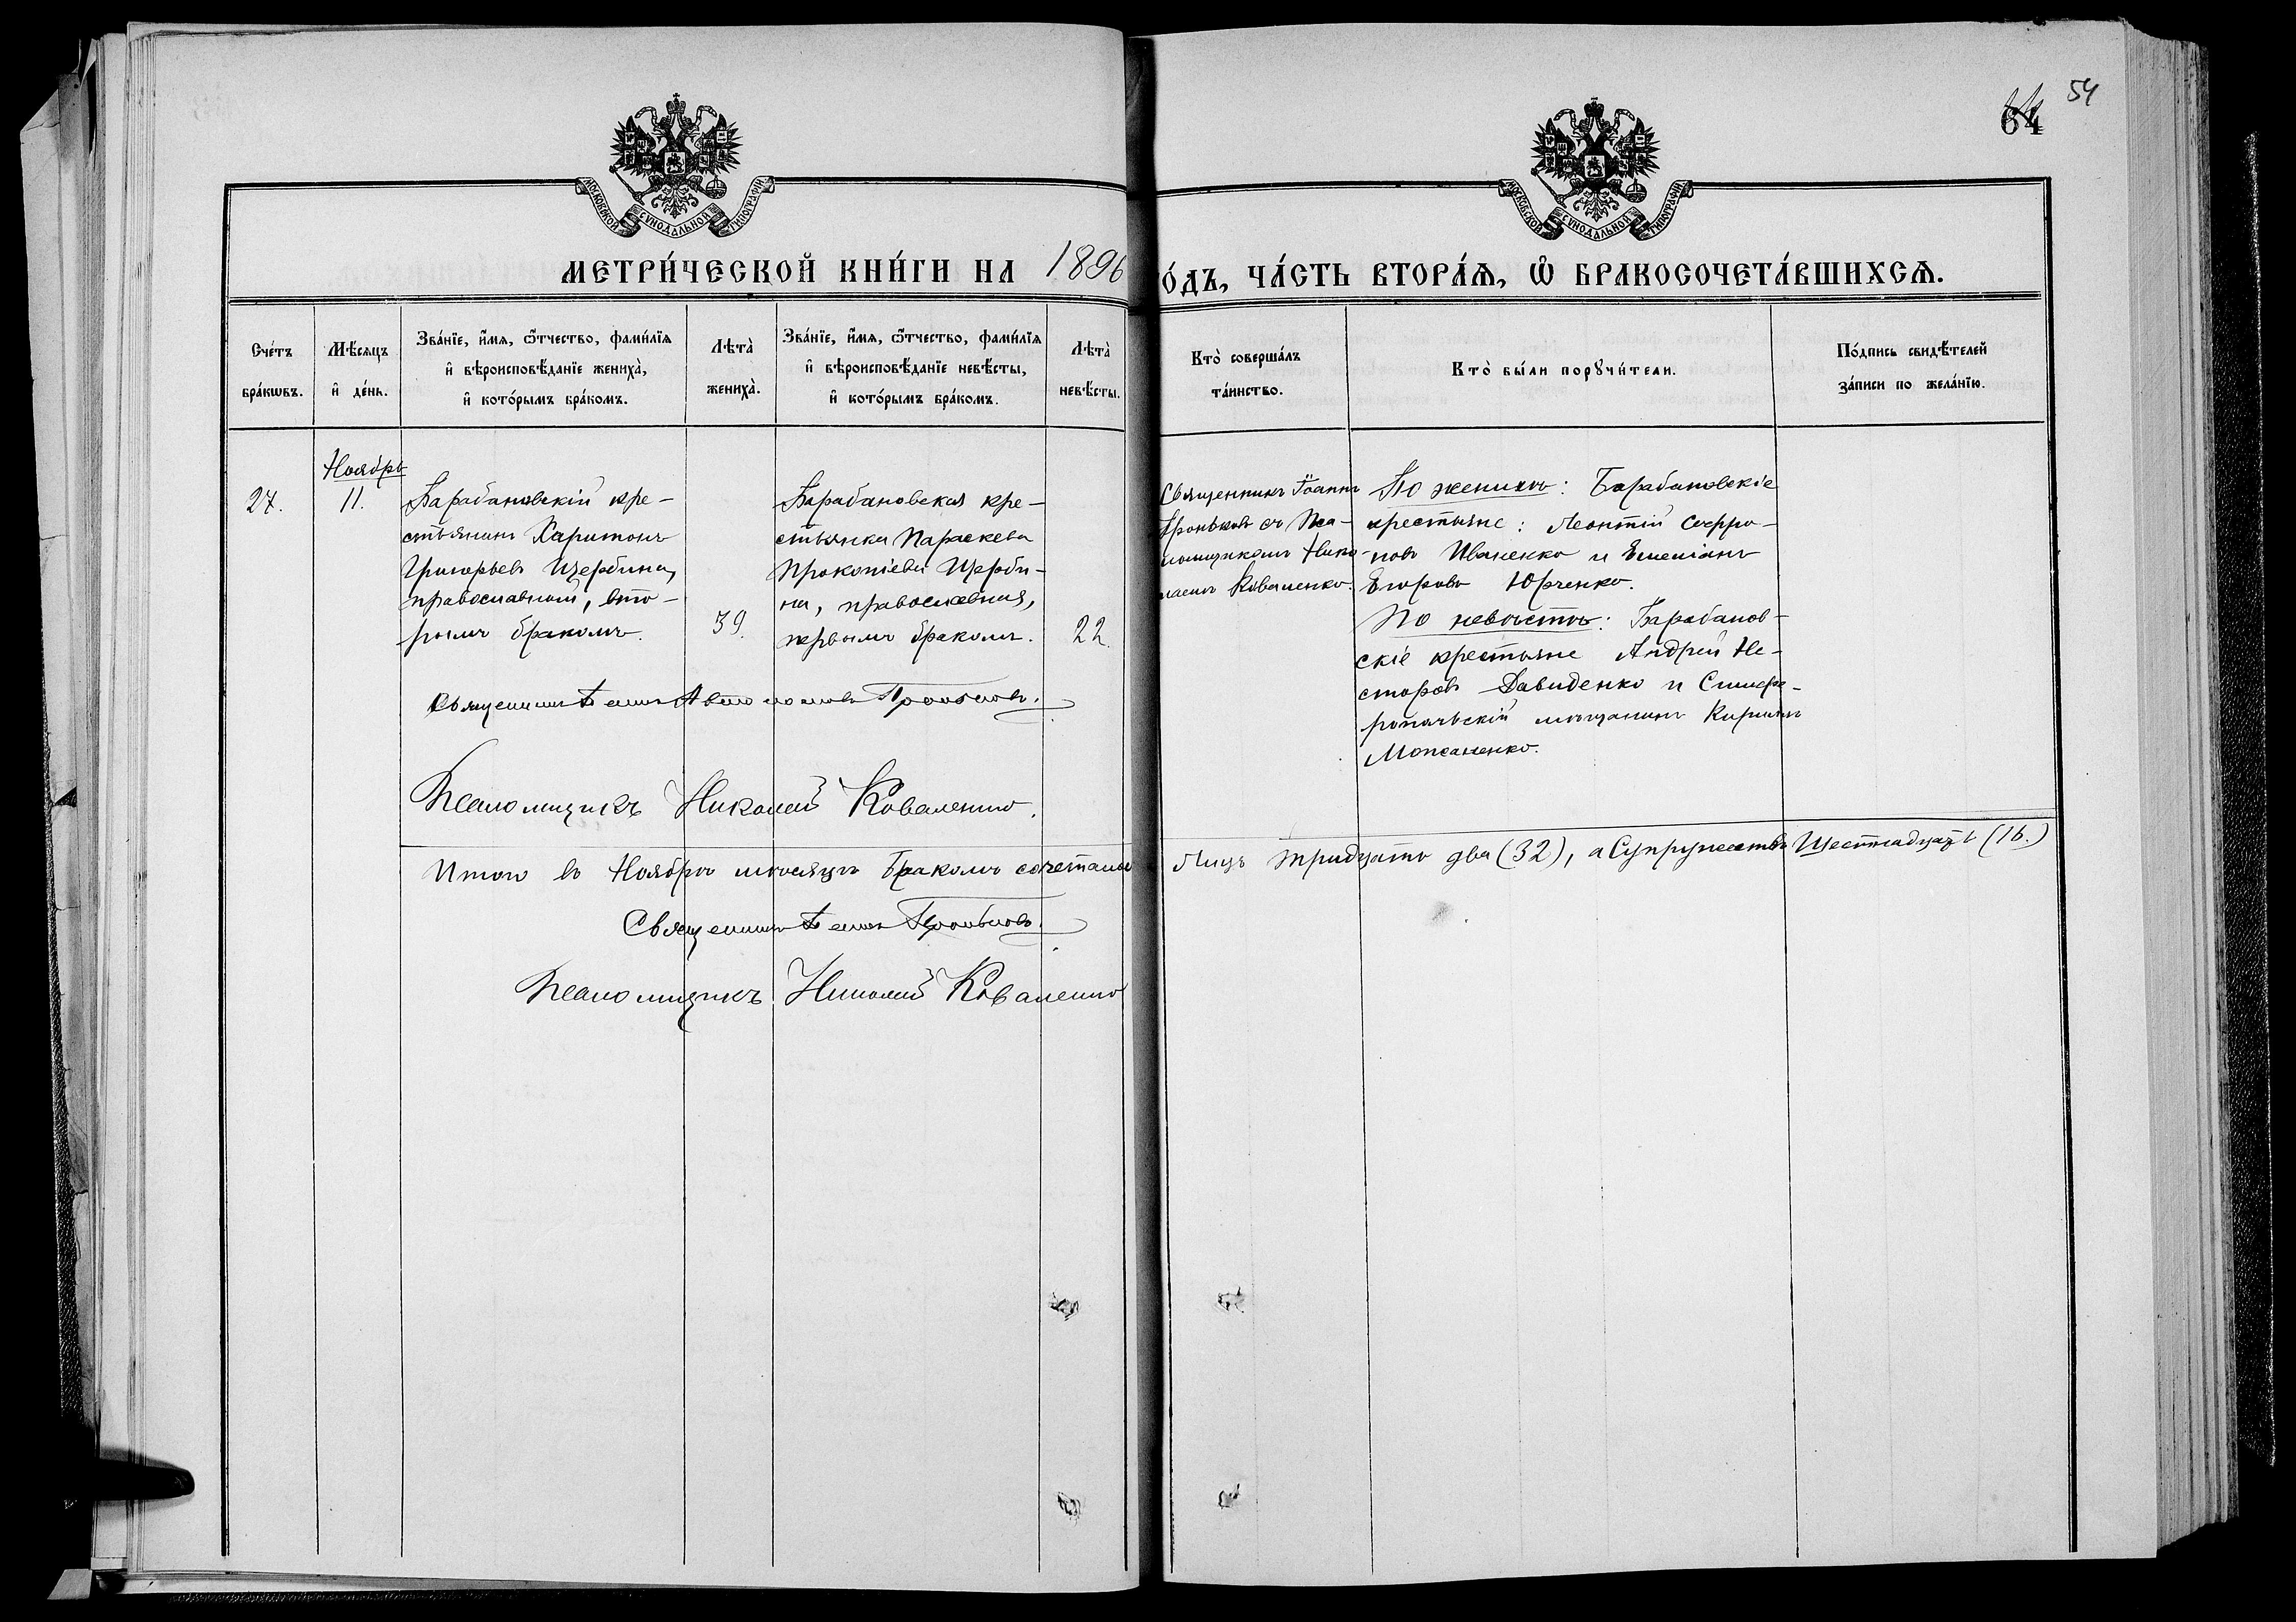 54
64
МОСКОВСКОЙ СѴНОДАЛЬНОЙ ТИПОГРАФІИ
МОСКОВСКОЙ СѴНОДАЛЬНОЙ ТИПОГРАФІИ
МЕТРИ́ЧЕСКОЙ КНИ́ГИ НА 1896
О́ДЪ, ЧА́СТЬ ВТОРА́Ѧ, Ѽ БРАКОСОЧЕТА́ВШИХСѦ.
Сче́тъ
бра́кѡвъ.
Мѣ́сяцъ
и҆ де́нь.
Зва́нїе, и҆́мя, ѻ҆́тчество, фами́лїя
и҆ вѣроисповѣ́данїе жениха̀,
и҆ кото́рымъ бра́комъ.
Лѣта̀
жениха̀.
Зва́нїе, и҆́мя, ѻ҆́тчество, фами́лїя
и҆ вѣроисповѣ́данїе невѣ́сты,
и҆ кото́рымъ бра́комъ.
Лѣта̀
невѣ́сты.
Кто̀ соверша́лъ
та́инство.
Кто̀ бы́ли порꙋчи́тели.
По́дпись свидѣ́телей
за́писи по жела́нїю.
27.
Ноябрь
11.
Барабановскій кре-
стьянинъ Харитонъ
Григорьевъ Щербина,
православный, вто-
рымъ бракомъ.
39.
Барабановская кре-
стьянка Параскева
Прокопіева Щерби-
на, православная,
первымъ бракомъ.
22.
Священникъ Іоаннъ
съ Пса-
ломщикомъ Нико-
лаемъ Коваленко.
По женихѣ: Барабановскіе
крестьяне: Леонтій Софро-
новъ Иваненко и Емеліанъ
Егоровъ Юрченко.
По невѣстѣ: Барабанов-
скіе крестьяне Андрей Не-
сторовъ Давиденко и Симфе-
ропольскій мѣщанинъ Кириллъ
Можаненко.
Священникъ Іоаннъ
Псаломщикъ Николай Коваленко.
Итого въ Ноябрѣ мѣсяцѣ бракомъ сочеталось
Лицъ тридцать два (32), а Супружествъ Шестнадцать (16.)
Священникъ Іоаннъ
Псаломщикъ Николай Коваленко